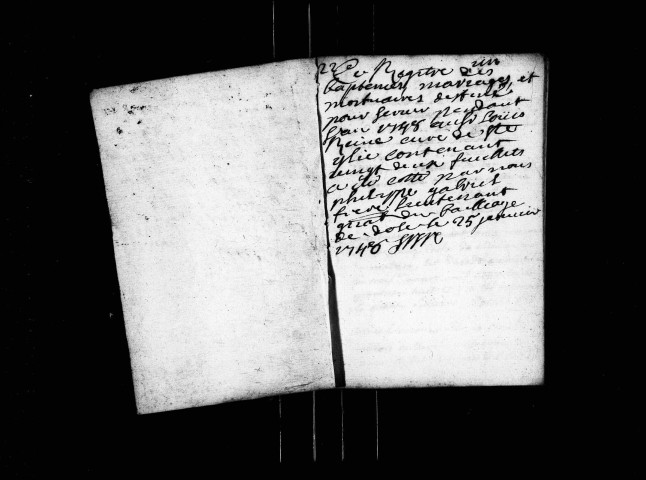 22e Ce Registre des
baptemes mariages et
mortuaires
pour servir pendant
l'an 1748 au Sr Louis
Reine curé de Ste
ylie contenant
vingt deux feuillets
a été cotté par nous
philippe gabriel
frere lieutenant
gnal du bailliage
de dole le 25 janvier
1748